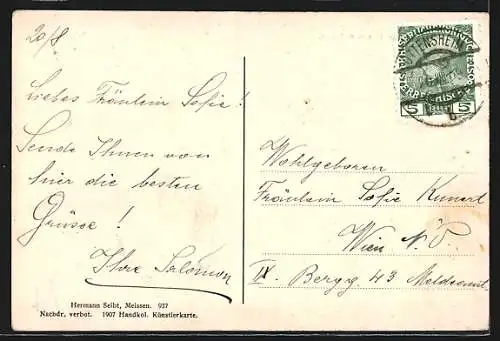 20/8
Liebes Fräulein Sofie!
Sende Ihnen von
hier die besten
Grüsse!
Ihre Salomon
Hermann Seibt, Meissen. 937
Nachdr. verbot. 1907 Handkol. Künstlerkarte.
TTENSHEIM
5 5
Wohlgeboren
Fräulein Sofie Kunert
Wien
IX. Bergg. 43